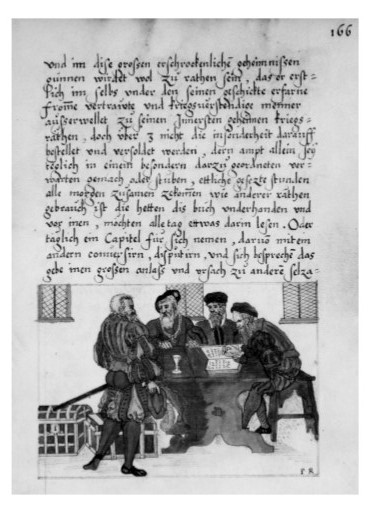 166
vnd im dise grossen erschrockenliche geheimnissen
gunnen wirdet wol zu rathen sein, das er erst=
lich im selbs vnder den seinen geschickte erfarne
fromme vertrawte vnd kriegsverstendige menner
ausserwellet zu seinen Innersten geheimen kriegs=
räthen, doch vber 3 nicht die in sonderheit darauff
bestellet vnd versoldet werden, dern ampt allein sey
teglich in einem besondern darzu geordneten ver=
warten gemach oder stuben, ettliche gesetzte stunden
alle morgen zusamen zekomen wie anderer räthen
gebrauch ist die hetten dis buch vnderhanden vnd
vor inen, mochten alle tag etwas darin lesen. Oder
täglich ein Capitel für sich nemen, daruo mitem
andern conuersirn, disputirn, vnd sich bespreche das
gebe inen grossen anlass vnd vrsach zu andere selza=